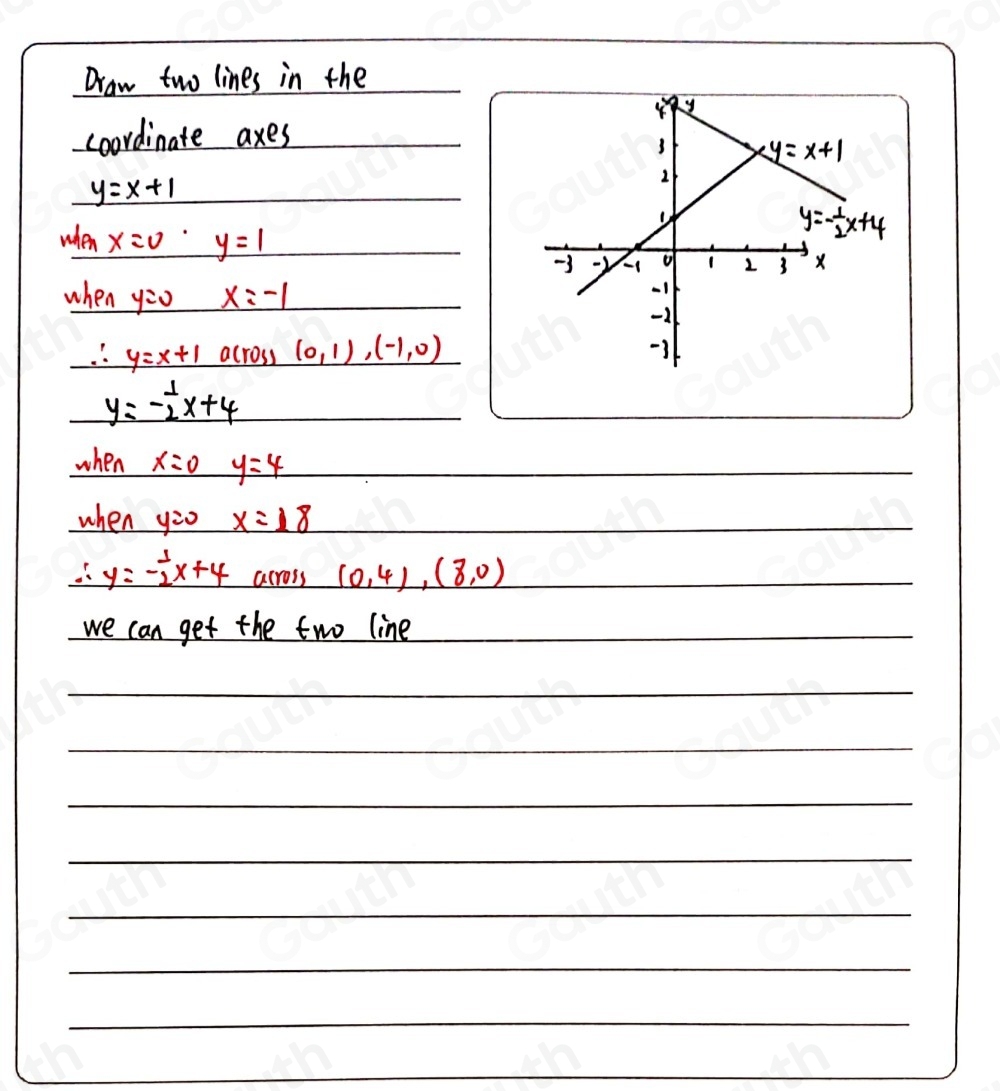 Draw two lines in the
coordinate axes
y=x+1
when x=0 y=1
when y=0 x=-1
∴ y=x+1 across (0,1),(-1,0)
y=-1/2x+4
when x=0 y=4
when y=0 x=8
∴ y=-1/2x+4 across (0,4),(8,0)
we can get the two line
4 y
3 y=x+1
2
1 y=-1/2x+4
-3 -2 -1 0 1 2 3 x
-1
-2
-3
Gauth